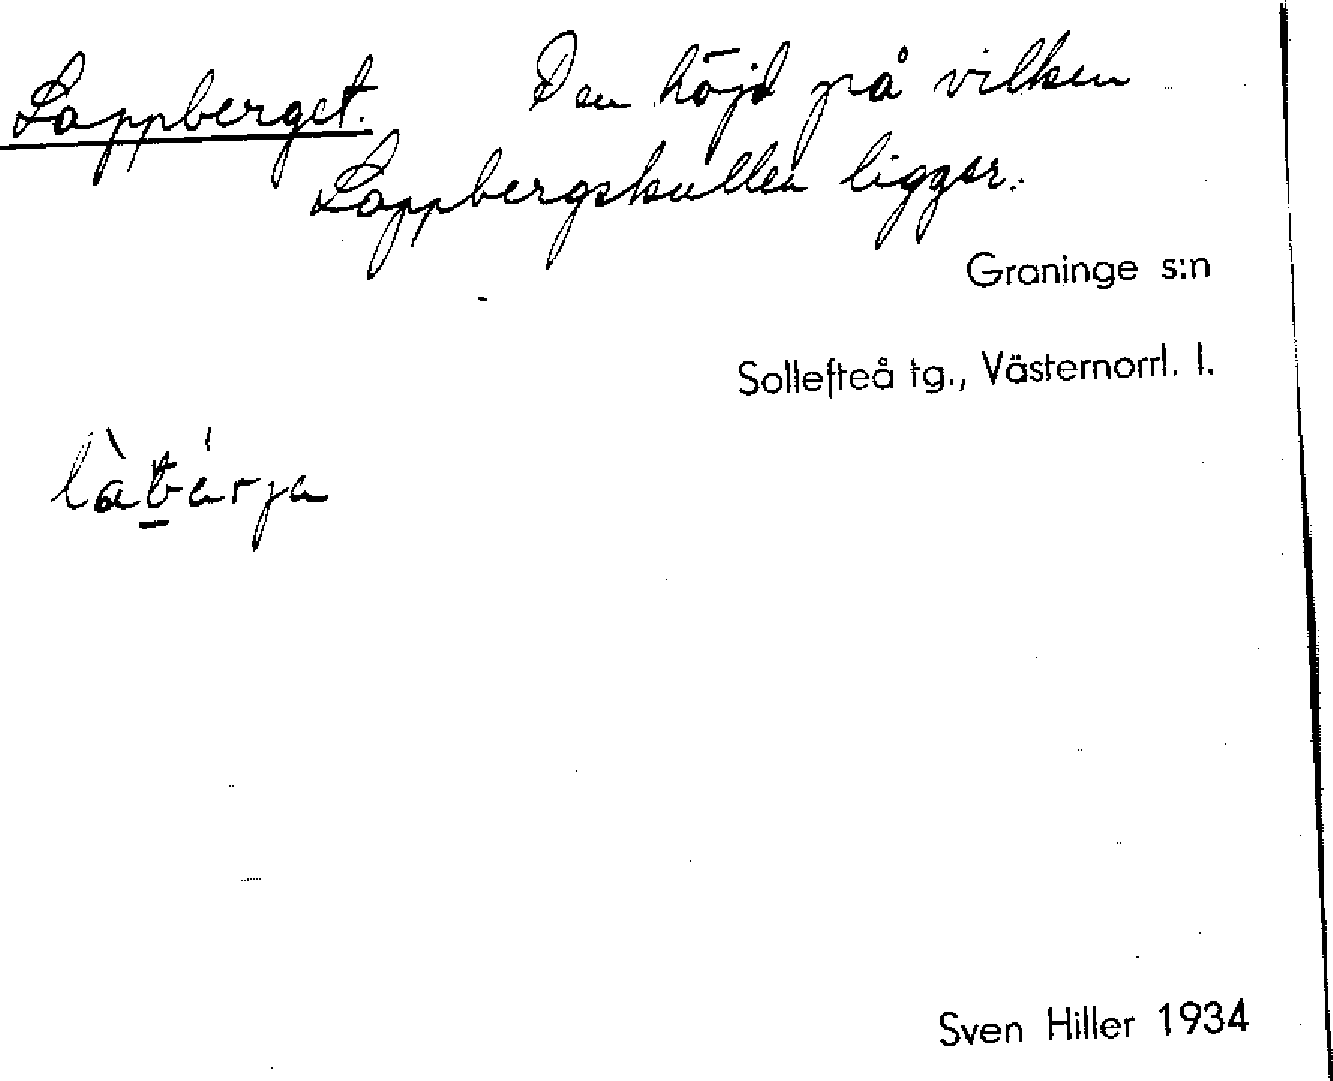 Lappberget. Den höjd på vilken
Lappbergskullen ligger.
Graninge s:n
Sollefteå tg., Västernorrl. l.
Sven Hiller 1934